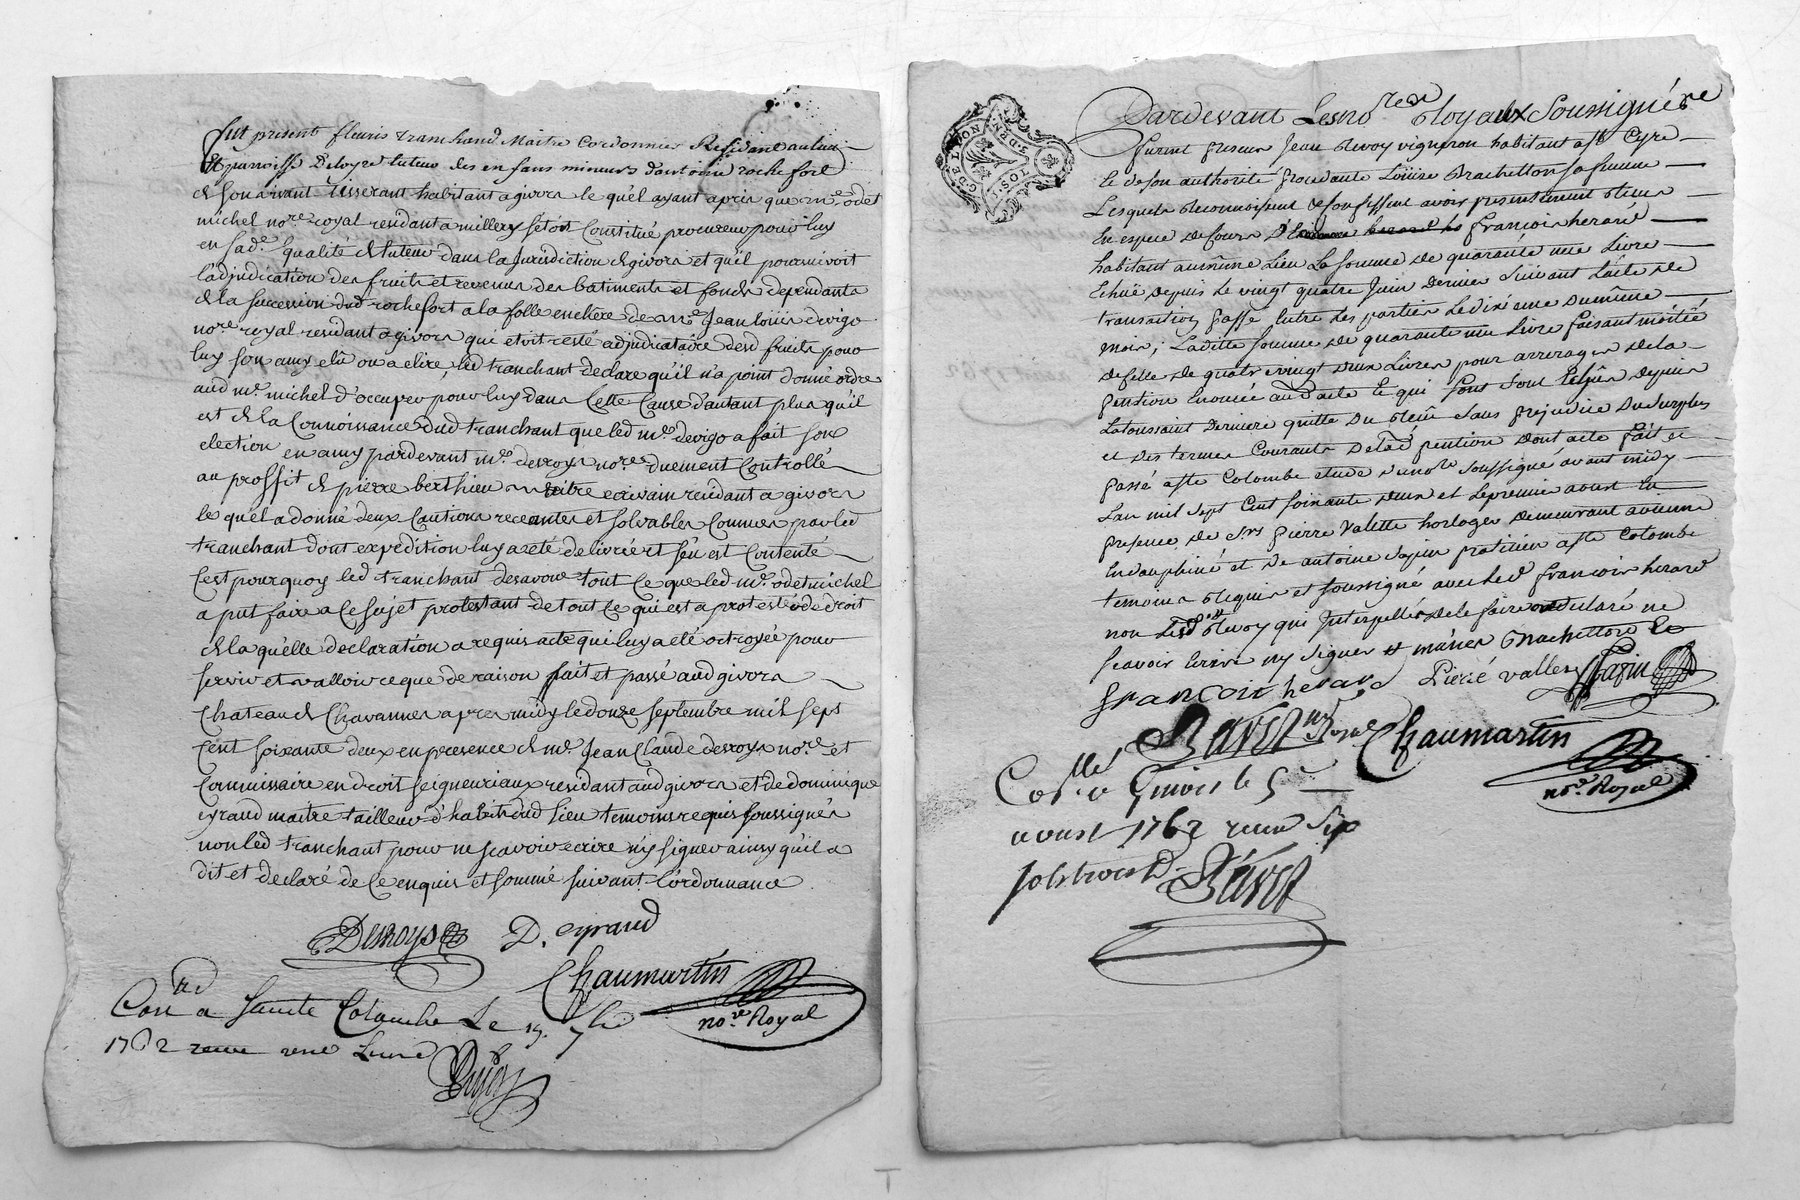 fut present fleuris tranchand Maitre Cordonnier Residant au lieu
et parroisse De loyre tuteur des enfans mineurs d'antoine rochefort
de son vivant tisserant habitant a givors le quel ayant apris que me. odet
michel nore. royal residant a millery se soit Constitué procureur pour luy
en sade. qualité de tuteur dans la Jurisdiction de givors et quil poursuivoit
l'adjudication des fruits et revenus des batiments et fonds dependants
de la succession dud rochefort a la folle enchere de me. Jean loüis devigo
nore. royal residant a givors qui etoit resté adjudicataire desd fruits pour
luy son amy elû ou a elire, led tranchant declare quil n'a point donné ordre
aud me. michel d'occuper pour luy dans Cette Cause d'autant plus qu'il
est de la Connoissance dud tranchant que led me. devigo a fait son
election en amy pardevant me. desroys nore. duement Controllé
au proffit de pierre berthieu maitre ecrivain residant a givors
le quel a donné deux Cautions receantes et solvables Connues par led
tranchant dont expedition luy a eté delivré et s'en est Contenté
C'est pourquoy led tranchant desavoue tout Ce que led me. odet michel
a put faire a Ce sujet protestant de tout Ce qui est a protester de droit
de la quélle declaration a requis acte qui luy a eté octroyée pour
servir et valloir ce que de raison fait et passé aud givors
Chateau de Chavannes apres midy le douze septembre mil sept
Cent soixante deux en presence de me. Jean Claude desroys nore. et
Commissaire en droit seigneuriaux residant aud givors et de dominique
eyraud maitre tailleur d'habits dud lieu temoins requis soussignés
non led tranchant pour ne scavoir ecrire ny signer ainsy quil a
dit et declaré de Ce enquis et sommé suivant l'ordonnance
Desroys D. eyraud
Chaumartin
nore. Royal
Con a Sainte Colombe Le 19. 7bre
1762 reçu
G. DE LYON
Pardevant Les nores. Royaux Soussignés
furent presens Jean Revoy vigneron habitant a ste Cyre
Et de son authorité procedante Loüise Brachetton sa femme
Lesquels Reconnoissent et confessent avoir presentement Receu
En espece de Cours D François herard
habitant au même Lieu La somme de quarante une Livre
Echüe depuis Le vingt quatre Juin dernier Suivant L'acte de
transaction passé Entre Les parties Le dixieme du même
mois, Laditte somme de quarante une Livre faisant moitié
de Celle de quatre vingt deux Livres pour arrerages de la
pension Enoncée aud acte Et qui sont tous Echus depuis
La toussaint derniere quitte du Reçu sans prejudice du surplus
et des termes Courants de lad pension dont acte fait et
passé a ste Colombe etude du nore soussigné avant midy
L'an mil sept Cent soixante deux et Le premier aoust En
presence de srs Pierre Valette horloger demeurant a vienne
En dauphiné et de antoine Sapin praticien a ste Colombe
temoins Requis et soussigné avec Led François herard
non Lesd Revoy qui Interpellés de le faire ont declaré ne
scavoir Ecrire ny signer
françoit herard Pierre vallet Sapin
Chaumartin
nore. Royal
Collé a Givors le 5
aoust 1762 reçu six
sols trois D.